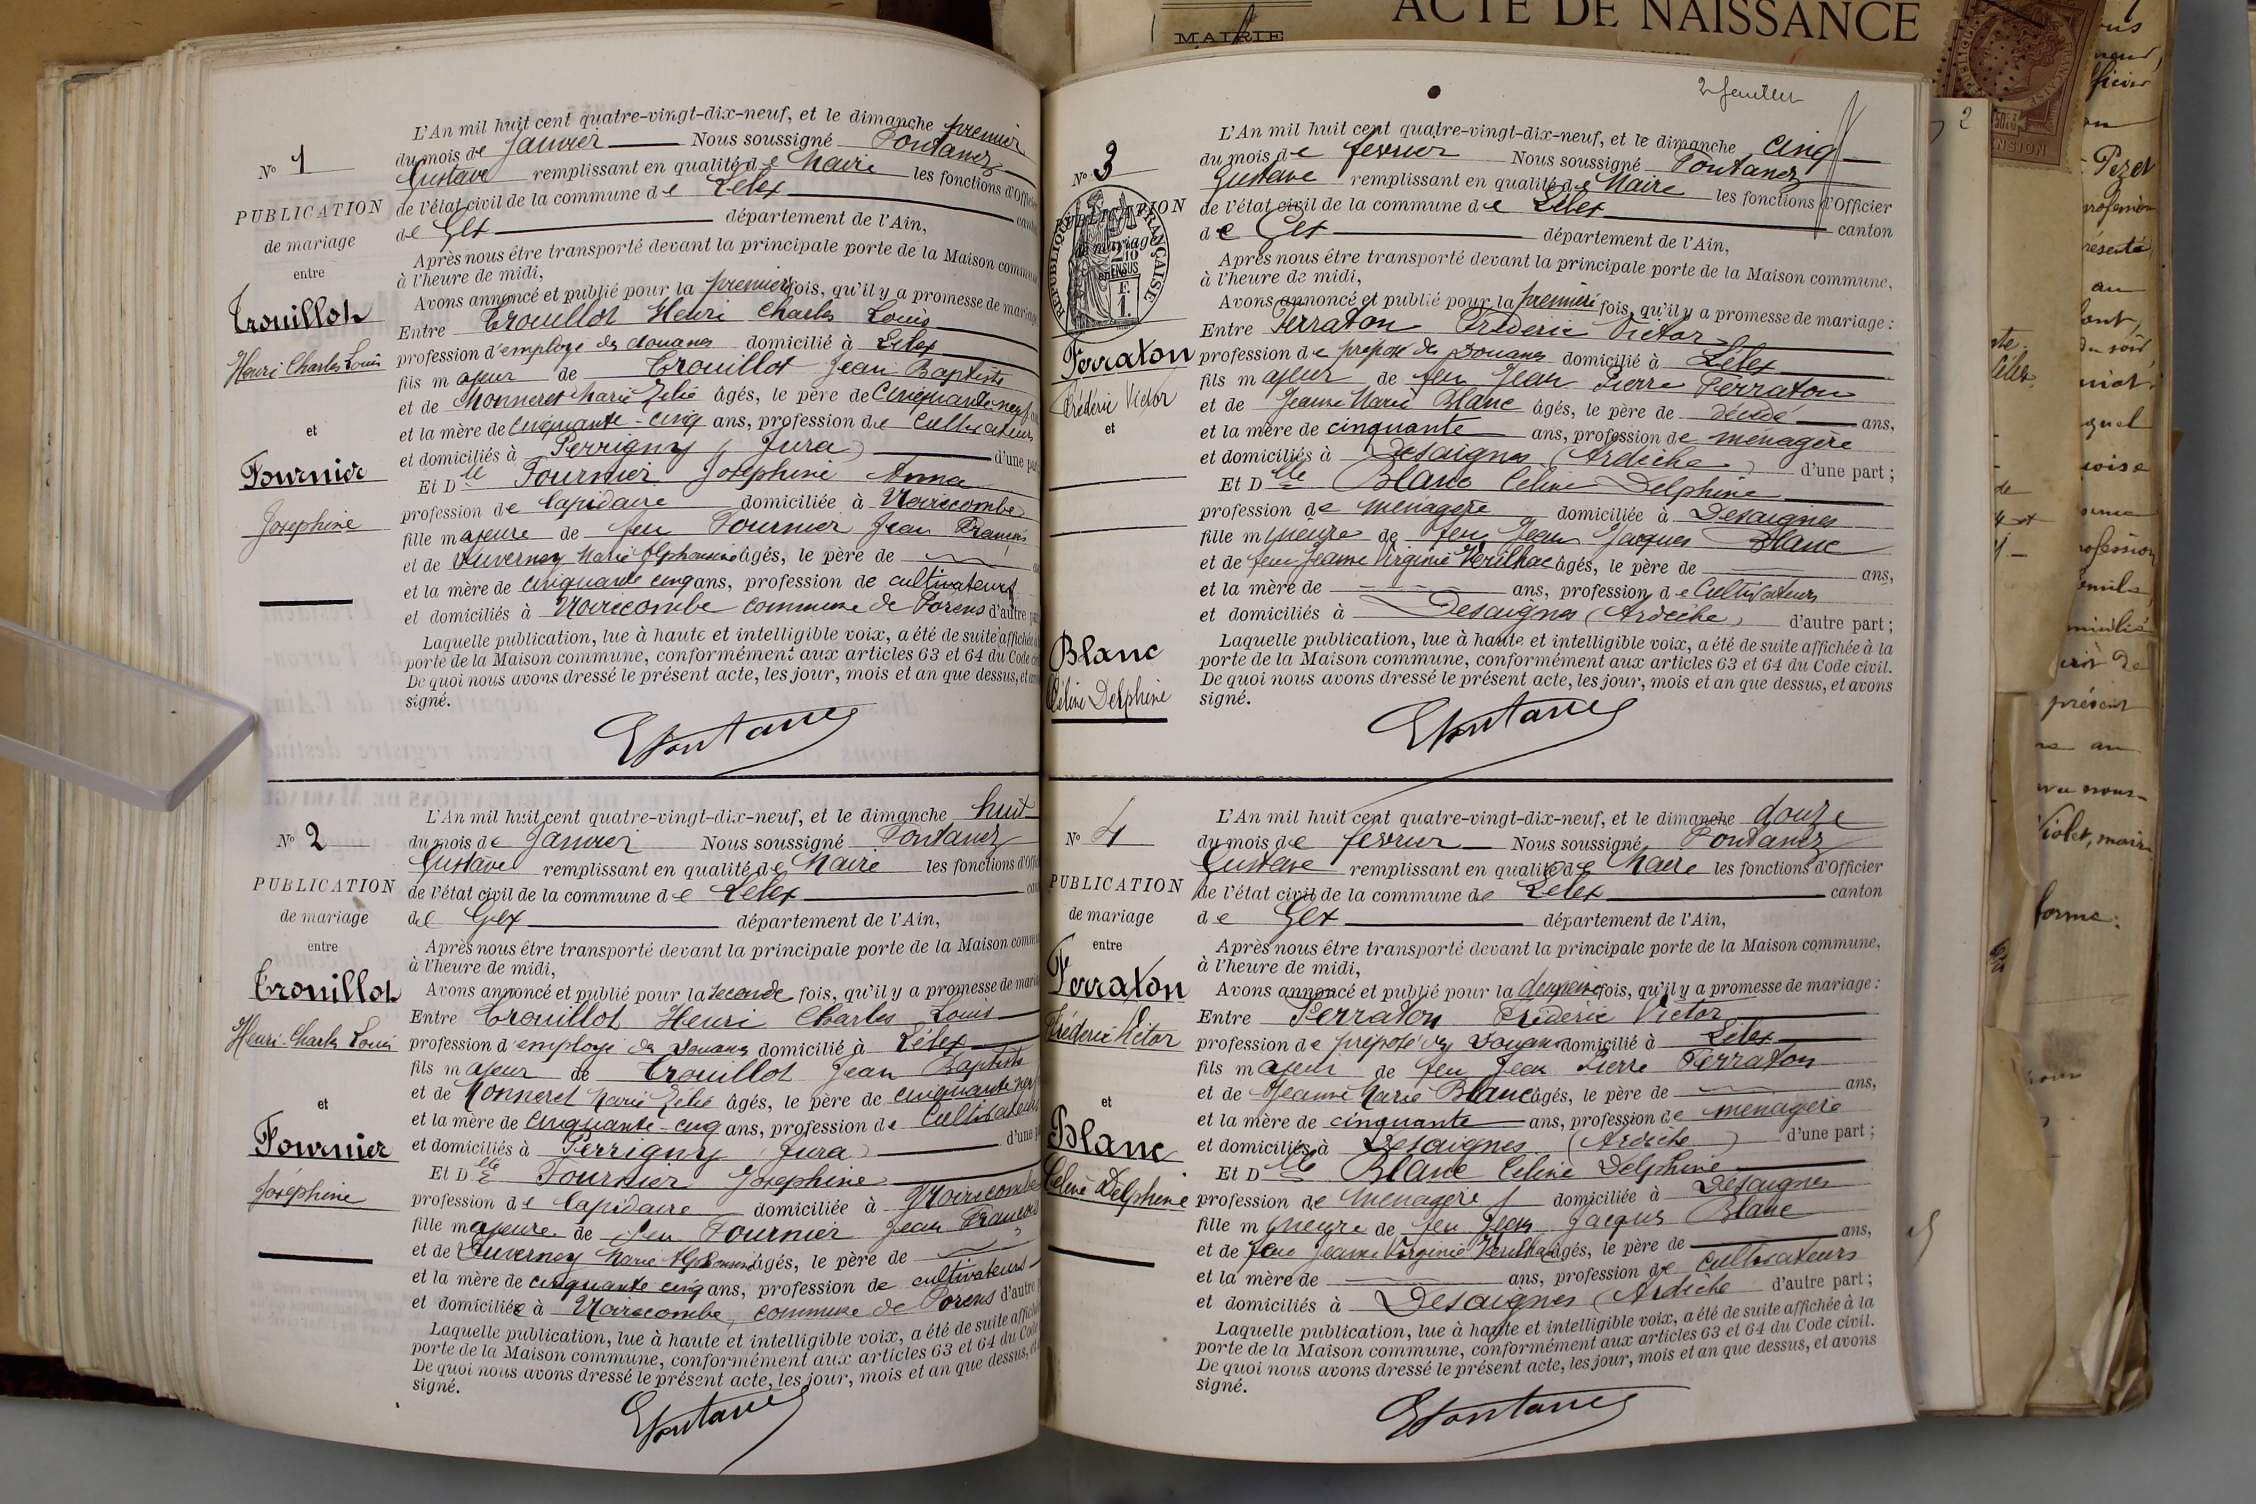 N° 1
PUBLICATION
de mariage
entre
Trouillot
Henri Charles Louis
et
Fournier
Josephine
L'An mil huit cent quatre-vingt-dix-neuf, et le dimanche premier
du mois de Janvier Nous soussigné Fontanez
Gustave remplissant en qualité de Maire les fonctions d'Officier
de l'état civil de la commune de Lélex canton
de Gex département de l'Ain,
Après nous être transporté devant la principale porte de la Maison commune
à l'heure de midi,
Avons annoncé et publié pour la première fois, qu'il y a promesse de mariage
Entre Trouillot Henri Charles Louis
profession d'employé des douanes domicilié à Lélex
fils majeur de Trouillot Jean Baptiste
et de Monneret Marie Zélie âgés, le père de Cinquante-neuf
et la mère de Cinquante-cinq ans, profession de Cultivateurs
et domiciliés à Perrigny (Jura) d'une part
Et Dlle Fournier Josephine Anna
profession de Lapidaire domiciliée à Noirecombe
fille majeure de feu Fournier Jean François
et de Duvernay Marie Alphonsine âgés, le père de
et la mère de cinquante cinq ans, profession de cultivateurs
et domiciliés à Noirecombe commune de Porens d'autre part
Laquelle publication, lue à haute et intelligible voix, a été de suite affichée à
porte de la Maison commune, conformément aux articles 63 et 64 du Code civil
De quoi nous avons dressé le présent acte, les jour, mois et an que dessus, et avons
signé.
GFontanez
N° 2
PUBLICATION
de mariage
entre
Trouillot
Henri-Charles Louis
et
Fournier
Joséphine
L'An mil huit cent quatre-vingt-dix-neuf, et le dimanche huit
du mois de Janvier Nous soussigné Fontanez
Gustave remplissant en qualité de Maire les fonctions d'Officier
de l'état civil de la commune de Lélex canton
de Gex département de l'Ain,
Après nous être transporté devant la principale porte de la Maison commune
à l'heure de midi,
Avons annoncé et publié pour la seconde fois, qu'il y a promesse de mariage
Entre Trouillot Henri Charles Louis
profession d'employé des Douanes domicilié à Lélex
fils majeur de Trouillot Jean Baptiste
et de Monneret Marie Zélie âgés, le père de cinquante neuf
et la mère de Cinquante-cinq ans, profession de Cultivateurs
et domiciliés à Perrigny Jura) d'une part
Et Dlle Fournier Josephine
profession de Lapidaire domiciliée à Noirecombe
fille majeure de feu Fournier Jean François
et de Duvernay Marie Alphonsine âgés, le père de
et la mère de cinquante cinq ans, profession de cultivateurs
et domiciliés à Noirecombe, commune de Porens d'autre
Laquelle publication, lue à haute et intelligible voix, a été de suite affichée
porte de la Maison commune, conformément aux articles 63 et 64 du Code
De quoi nous avons dressé le présent acte, les jour, mois et an que dessus, et
signé.
GFontanez
MAIRIE
ACTE DE NAISSANCE
2 feuillet
N° 3
PUBLICATION
de mariage
RÉPUBLIQUE FRANÇAISE
2/10
EN SUS
F.
1.
Ferraton
Frédéric Victor
et
Blanc
Céline Delphine
L'An mil huit cent quatre-vingt-dix-neuf, et le dimanche cinq
du mois de fevrier Nous soussigné Fontanez
Gustave remplissant en qualité de Maire les fonctions d'Officier
de l'état civil de la commune de Lélex canton
de Gex département de l'Ain,
Après nous être transporté devant la principale porte de la Maison commune,
à l'heure de midi,
Avons annoncé et publié pour la première fois, qu'il y a promesse de mariage :
Entre Ferraton Frédéric Victor
profession de préposé des Douanes domicilié à Lélex
fils majeur de feu Jean Pierre Ferraton
et de Jeanne Marie Blanc âgés, le père de décédé ans,
et la mère de cinquante ans, profession de ménagère
et domiciliés à Desaignes (Ardèche) d'une part ;
Et Dlle Blanc Céline Delphine
profession de ménagère domiciliée à Desaignes
fille mineure de feu Jean Jacques Blanc
et de feue Jeanne Virginie Verilhac âgés, le père de ans,
et la mère de ans, profession de Cultivateurs
et domiciliés à Desaignes (Ardèche) d'autre part ;
Laquelle publication, lue à haute et intelligible voix, a été de suite affichée à la
porte de la Maison commune, conformément aux articles 63 et 64 du Code civil.
De quoi nous avons dressé le présent acte, les jour, mois et an que dessus, et avons
signé.
GFontanez
N° 4
PUBLICATION
de mariage
entre
Ferraton
Fréderic Victor
et
Blanc
Celine Delphine
L'An mil huit cent quatre-vingt-dix-neuf, et le dimanche douze
du mois de fevrier Nous soussigné Fontanez
Gustave remplissant en qualité de Maire les fonctions d'Officier
de l'état civil de la commune de Lélex canton
de Gex département de l'Ain,
Après nous être transporté devant la principale porte de la Maison commune,
à l'heure de midi,
Avons annoncé et publié pour la deuxième fois, qu'il y a promesse de mariage :
Entre Ferraton Fréderic Victor
profession de préposé des Douanes domicilié à Lélex
fils majeur de feu Jean Pierre Ferraton
et de Jeanne Marie Blanc âgés, le père de ans,
et la mère de cinquante ans, profession de ménagère
et domiciliés à Desaignes (Ardèche) d'une part ;
Et Dlle Blanc Celine Delphine
profession de ménagère domiciliée à Desaignes
fille mineure de feu Jean Jacques Blanc
et de feue Jeanne Virginie Verilhac âgés, le père de ans,
et la mère de ans, profession de cultivateurs
et domiciliés à Desaignes (Ardèche d'autre part ;
Laquelle publication, lue à haute et intelligible voix, a été de suite affichée à la
porte de la Maison commune, conformément aux articles 63 et 64 du Code civil.
De quoi nous avons dressé le présent acte, les jour, mois et an que dessus, et avons
signé.
GFontanez
2
Pezet
au
présent
Violet, maire
forme: